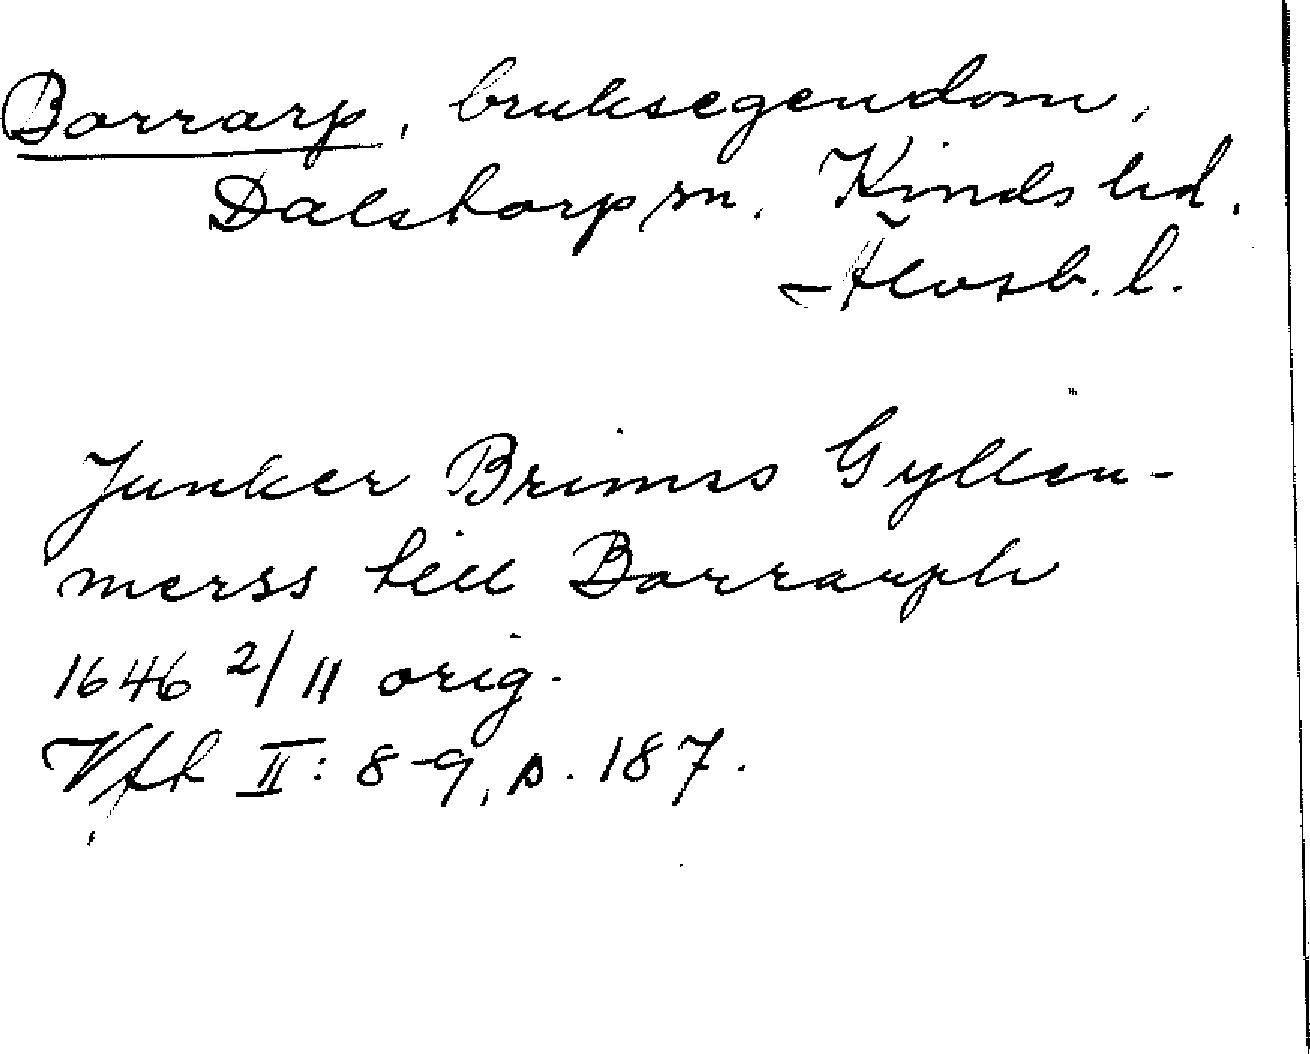 Borrarp, bruksegendom,
Dalstorp sn. Kinds hd.
Älvsb. l.
Junker Brimss Gyllen-
merss till Borrarph
1646 2/11 orig.
Vfk II: 8-9, s. 187.